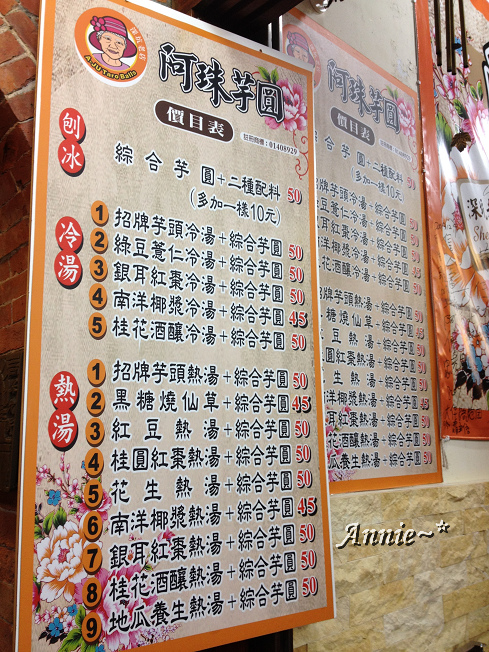 深坑老街
A-JU Taro Balls
阿珠芋圓
價目表
註冊商標:01408929
刨冰
綜合芋圓+二種配料 50
(多加一樣10元)
冷湯
1 招牌芋頭冷湯+綜合芋圓 50
2 綠豆薏仁冷湯+綜合芋圓 50
3 銀耳紅棗冷湯+綜合芋圓 50
4 南洋椰漿冷湯+綜合芋圓 45
5 桂花酒釀冷湯+綜合芋圓 50
熱湯
1 招牌芋頭熱湯+綜合芋圓 50
2 黑糖燒仙草+綜合芋圓 45
3 紅豆熱湯+綜合芋圓 50
4 桂圓紅棗熱湯+綜合芋圓 50
5 花生熱湯+綜合芋圓 50
6 南洋椰漿熱湯+綜合芋圓 45
7 銀耳紅棗熱湯+綜合芋圓 50
8 桂花酒釀熱湯+綜合芋圓 50
9 地瓜養生熱湯+綜合芋圓 50
阿珠芋圓
價目表
綜合芋圓+二種配料 50
(多加一樣10元)
招牌芋頭冷湯+綜合芋圓 50
綠豆薏仁冷湯+綜合芋圓 50
銀耳紅棗冷湯+綜合芋圓 50
南洋椰漿冷湯+綜合芋圓 45
桂花酒釀冷湯+綜合芋圓 50
招牌芋頭熱湯+綜合芋圓 50
糖燒仙草+綜合芋圓 45
豆熱湯+綜合芋圓 50
圓紅棗熱湯+綜合芋圓 50
生熱湯+綜合芋圓 50
南洋椰漿熱湯+綜合芋圓 45
銀耳紅棗熱湯+綜合芋圓 50
桂花酒釀熱湯+綜合芋圓 50
地瓜養生熱湯+綜合芋圓 50
深
She
Annie~*